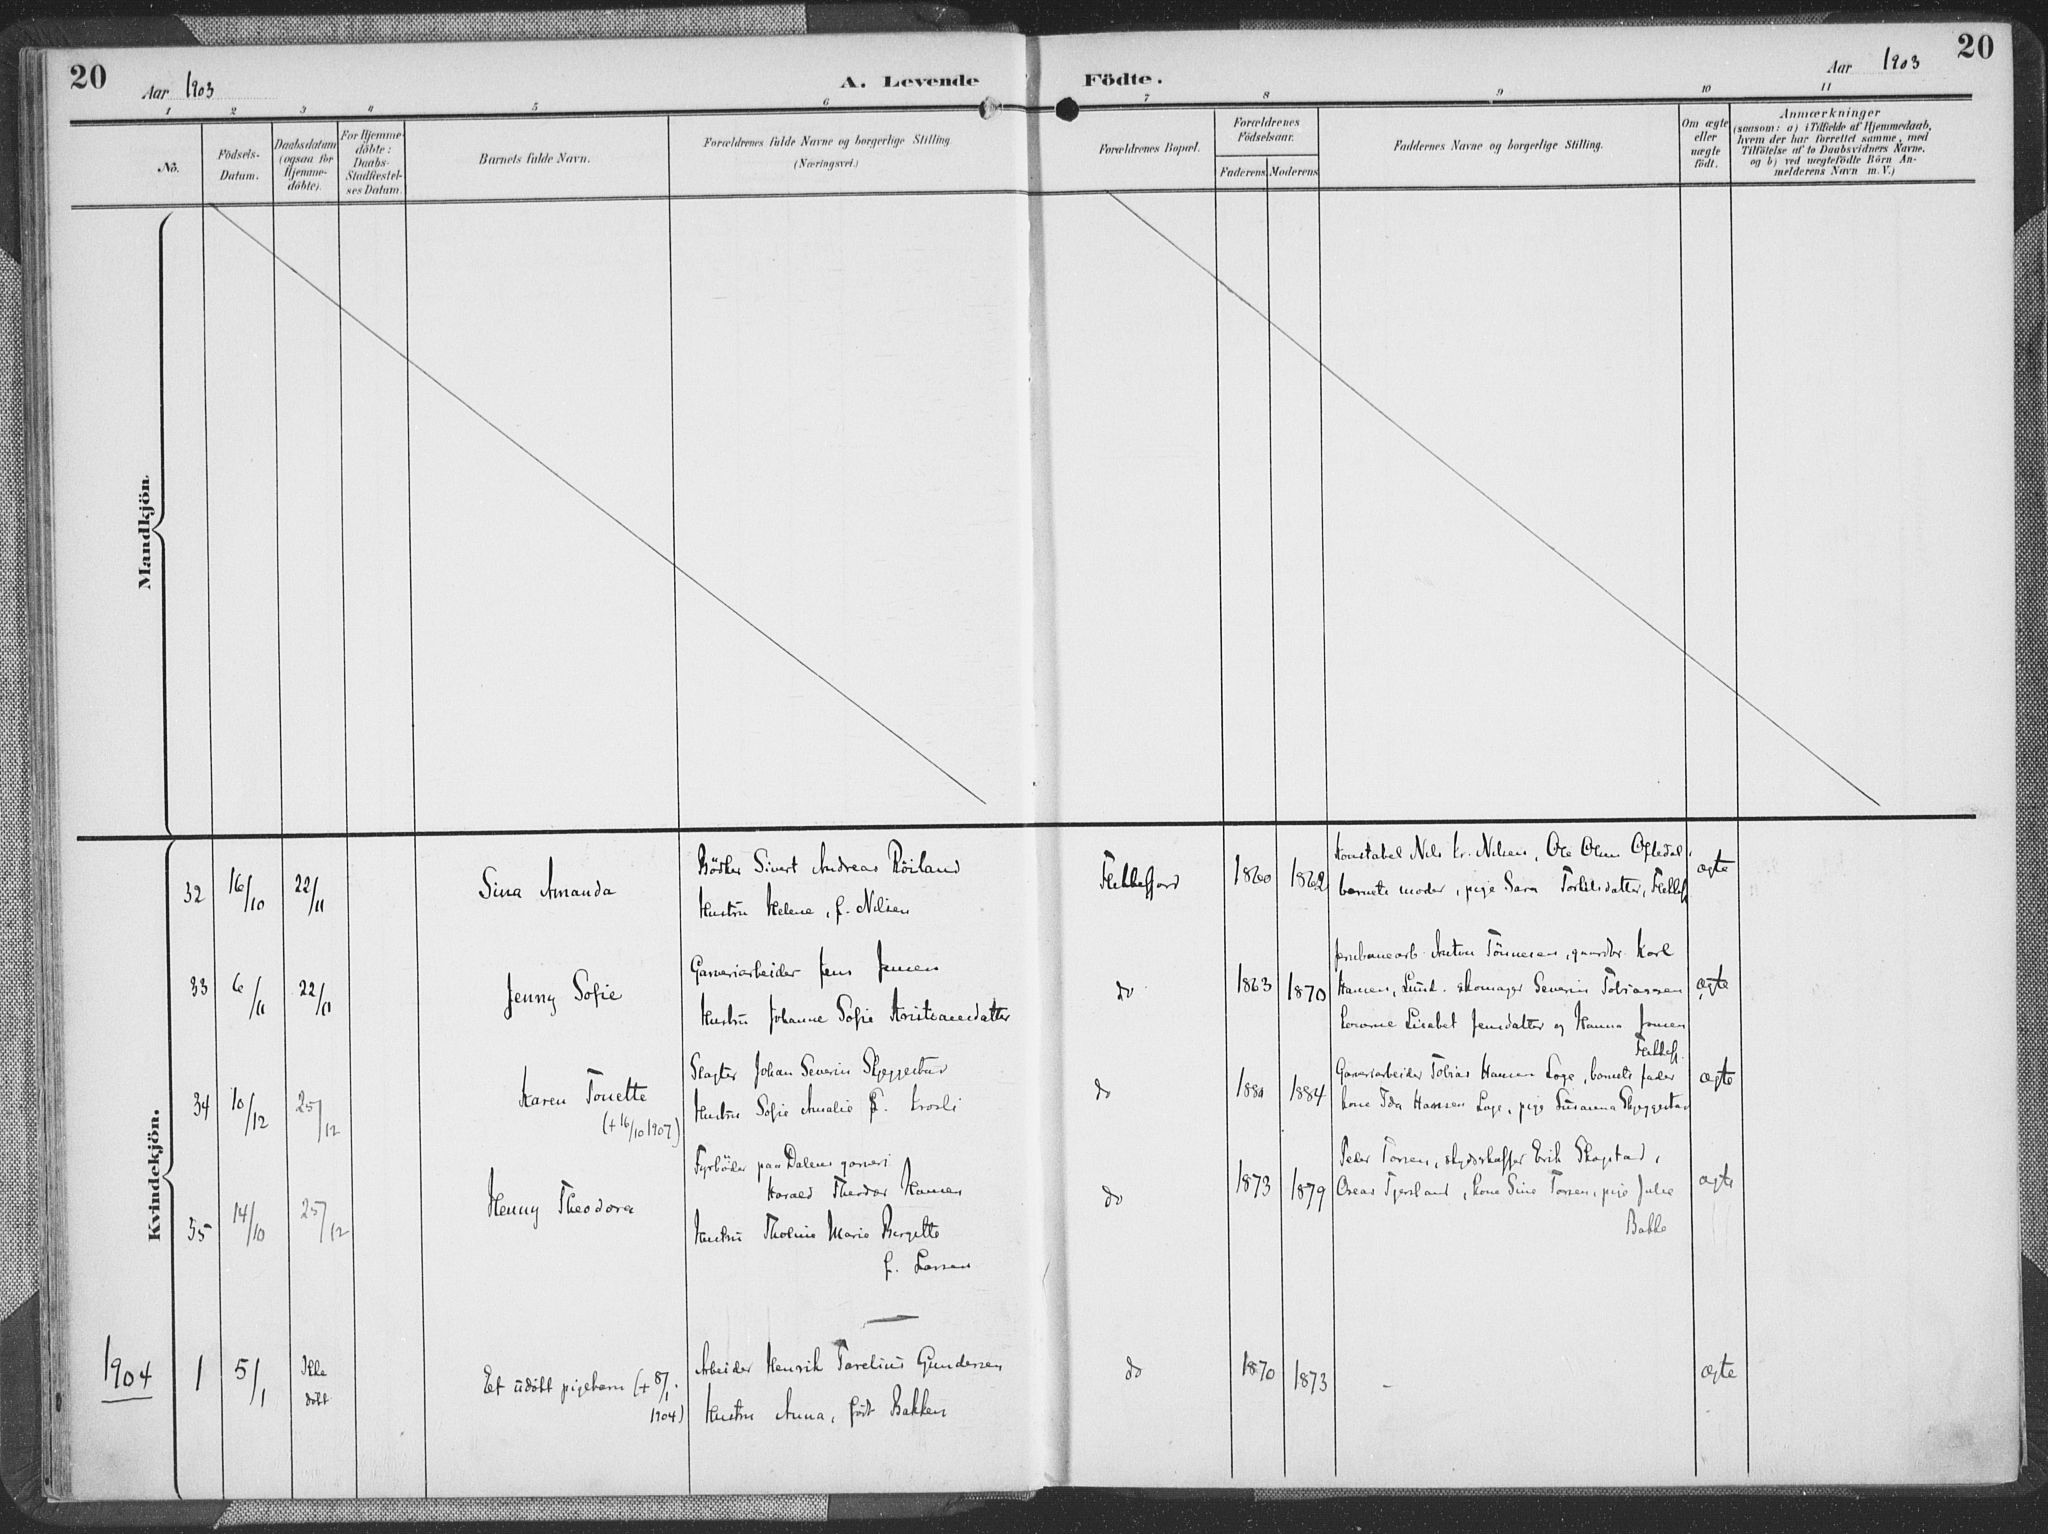 20
Aar 1903
A. Levende Födte.
Aar 1903
20
1 2 3 4 5 6 7 8 9 10 11
No.
Födsels-
Datum.
Daabsdatum
(ogsaa for
Hjemme-
döbte).
For Hjemme-
döbte:
Daabs-
Stadfæstel-
ses Datum.
Barnets fulde Navn.
Forældrenes fulde Navne og borgerlige Stilling
(Næringsvei.)
Forældrenes Bopæl.
Forældrenes
Födselsaar.
Faderens Moderens
Faddernes Navne og borgerlige Stilling.
Om ægte
eller
uægte
födt.
Anmærkninger
(saasom: a) i Tilfælde af Hjemmedaab,
hvem der har forrettet samme, med
Tilföielse af to Daabsvidners Navne,
og b) ved uægtefödte Börn An-
melderens Navn m. V.)
Mandkjön.
Kvindekjön.
32 16/10 22/11 Sina Amanda
Bödker Sivert Andreas Röiland
Hustru Helene, f. Nilsen
Flekkefjord 1860 1862
Konstabel Nils Kr. Nilsen, Ole Olsen
barnets moder, pige Sara Torkildsdatter, Flekkefj
ægte
33 6/11 22/11 Jenny Sofie
Garveriarbeider Jens Jensen
Hustru Johanne Sofie Kristiansdatter
do 1863 1870
Jernbanearb. Anton Tönnesen, gaardbr. Karl
Hansen, Lund. skomager Severin Tobiassen
konerne Lisabet Jensdatter og Hanna Jensen
Flekkefj.
ægte
34 10/12 25/12 Karen Tonette
(+ 16/10 1907)
Slagter Johan Severin Skjeggestad
Hustru Sofie Amalie f.
do 1881 1884
Garveriarbeider Tobias Hansen Loge, barnets fader
kone Ida Hansen Loge, pige Susanna Skjeggestad
ægte
35 14/10 25/12 Henny Theodora
Fyrböder paa Dalens garveri
Harald Theodor Hansen
Hustru Tholine Marie Bergitte
f. Larsen
do 1873 1879
Peder Larsen, skydsskaffer Erik Skogstad,
Oscar Tjersland, kone Sine Larsen, pige Julie
Bakke
ægte
1904 1 5/1 Ikke
döbt
Et udöbt pigebarn (+ 8/1
1904)
Arbeider Henrik Tarelius Gundersen
Hustru Anna, födt Bakken
do 1870 1873 - ægte